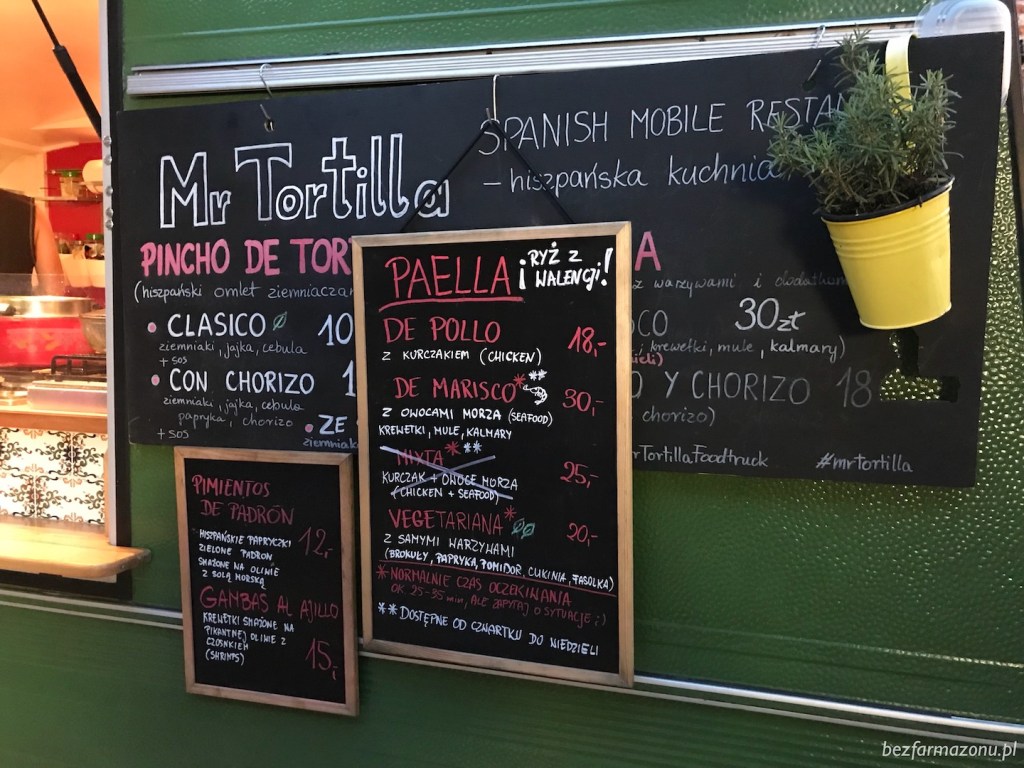 Mr Tortilla
SPANISH MOBILE
– hiszpańska kuchnia
PINCHO DE TORT
(hiszpański omlet ziemniaczan
• CLASICO 10
ziemniaki, jajka, cebula
+ sos
• CON CHORIZO 1
ziemniaki, jajka, cebula
papryka, chorizo
+ sos
• ZE
A
z warzywami i
30zł
, krewetki, mule, kalmary)
Y CHORIZO 18
chorizo)
rTortillaFoodtruck #mrtortilla
PAELLA ¡RYŻ Z WALENCJI!
DE POLLO 18,-
Z KURCZAKIEM (CHICKEN)
DE MARISCO* ** 30,-
Z OWOCAMI MORZA (SEAFOOD)
KREWETKI, MULE, KALMARY
MIXTA* ** 25,-
KURCZAK + OWOCE MORZA
(CHICKEN + SEAFOOD)
VEGETARIANA* 20,-
Z SAMYMI WARZYWAMI
(BROKUŁY, PAPRYKA, POMIDOR, CUKINIA, FASOLKA)
* NORMALNIE CZAS OCZEKIWANIA
OK 25-35 min, ALE ZAPYTAJ O SYTUACJE ;)
** DOSTĘPNE OD CZWARTKU DO NIEDZIELI
PIMIENTOS
DE PADRÓN
HISZPAŃSKIE PAPRYCZKI 12,-
ZIELONE PADRON
SMAŻONE NA OLIWIE
Z SOLĄ MORSKĄ
GAMBAS AL AJILLO
KREWETKI SMAŻONE NA
PIKANTNEJ OLIWIE Z
CZOSNKIEM 15,-
(SHRIMPS)
bezfarmazonu.pl